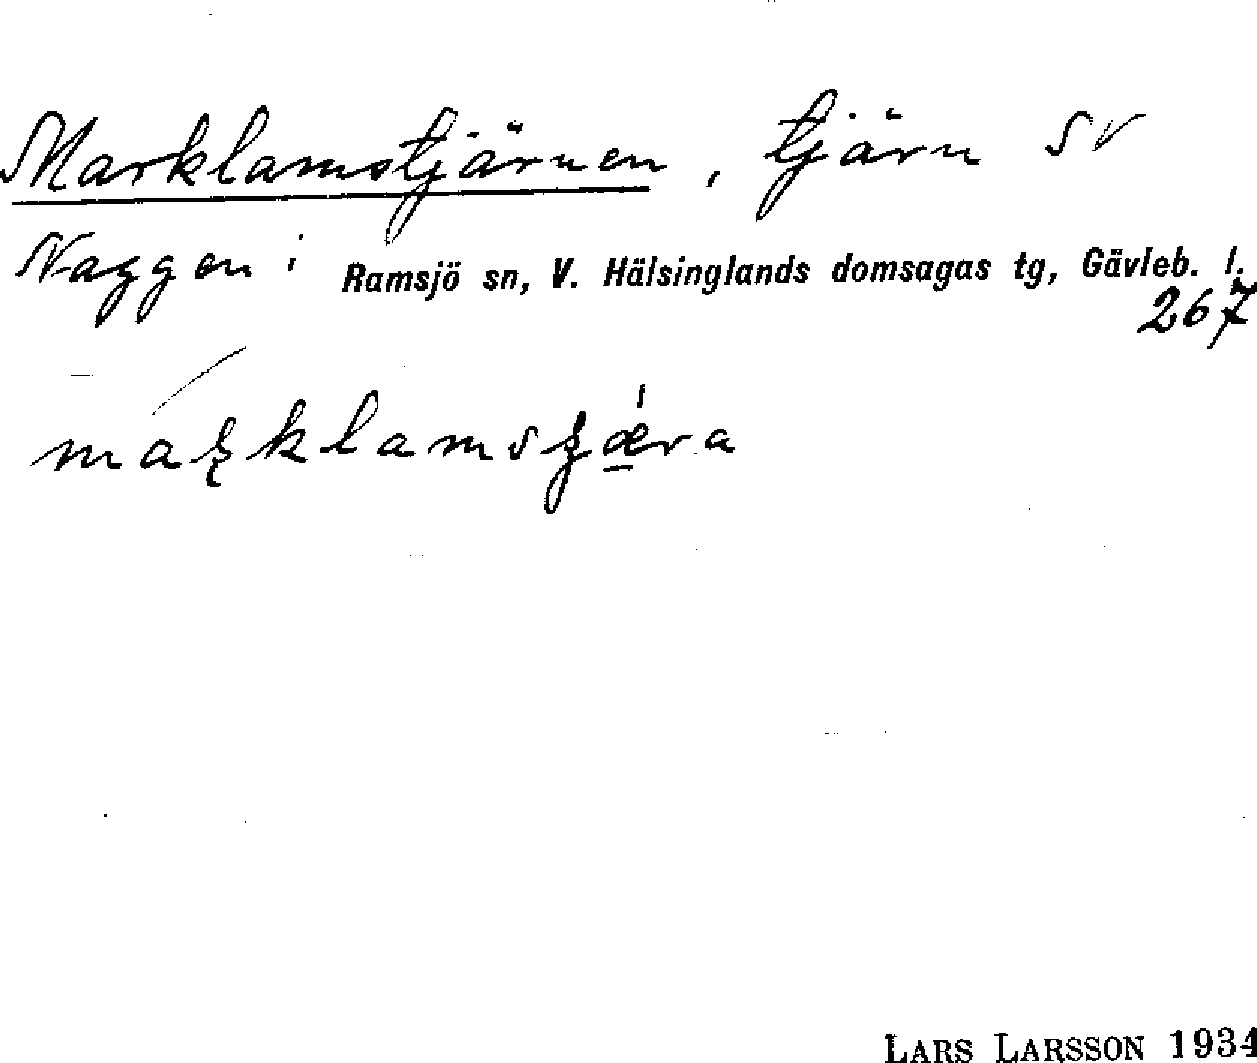 Marklamstjärnen, tjärn SV
Naggen i Ramsjö sn, V. Hälsinglands domsagas tg, Gävleb. l.
267
LARS LARSSON 1934